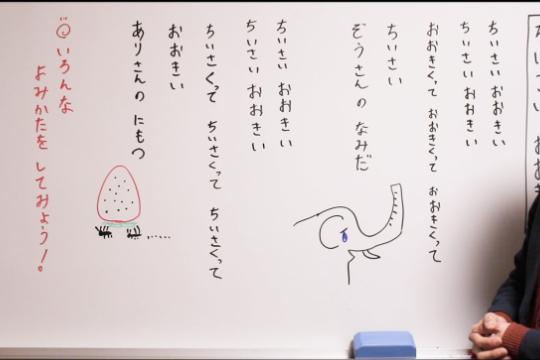 ちいさい おおきい
ちいさい おおきい
おおきくって おおきくって おおきくって
ちいさい
ぞうさんの なみだ
ちいさい おおきい
ちいさい おおきい
ちいさくって ちいさくって ちいさくって
おおきい
ありさんの にもつ
◎いろんな
よみかたを してみよう!